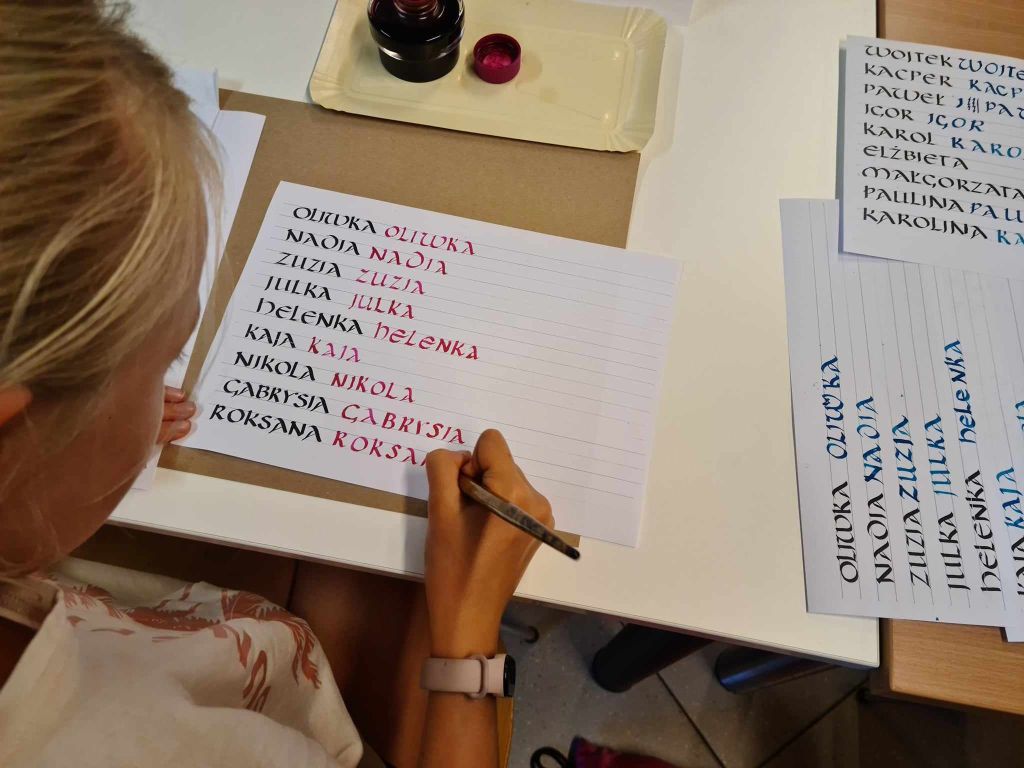 OLIWKA OLIWKA
NADIA NADIA
ZUZIA ZUZIA
JULKA JULKA
HELENKA HELENKA
KAJA KAJA
NIKOLA NIKOLA
GABRYSIA GABRYSIA
ROKSANA
WOJTEK
KACPER
PAWEŁ
IGOR IGOR
KAROL
ELŻBIETA
MAŁGORZATA
PAULINA
KAROLINA
OLIWKA OLIWKA
NADIA NADIA
ZUZIA ZUZIA
JULKA JULKA
HELENKA HELENKA
KAJA KAJA